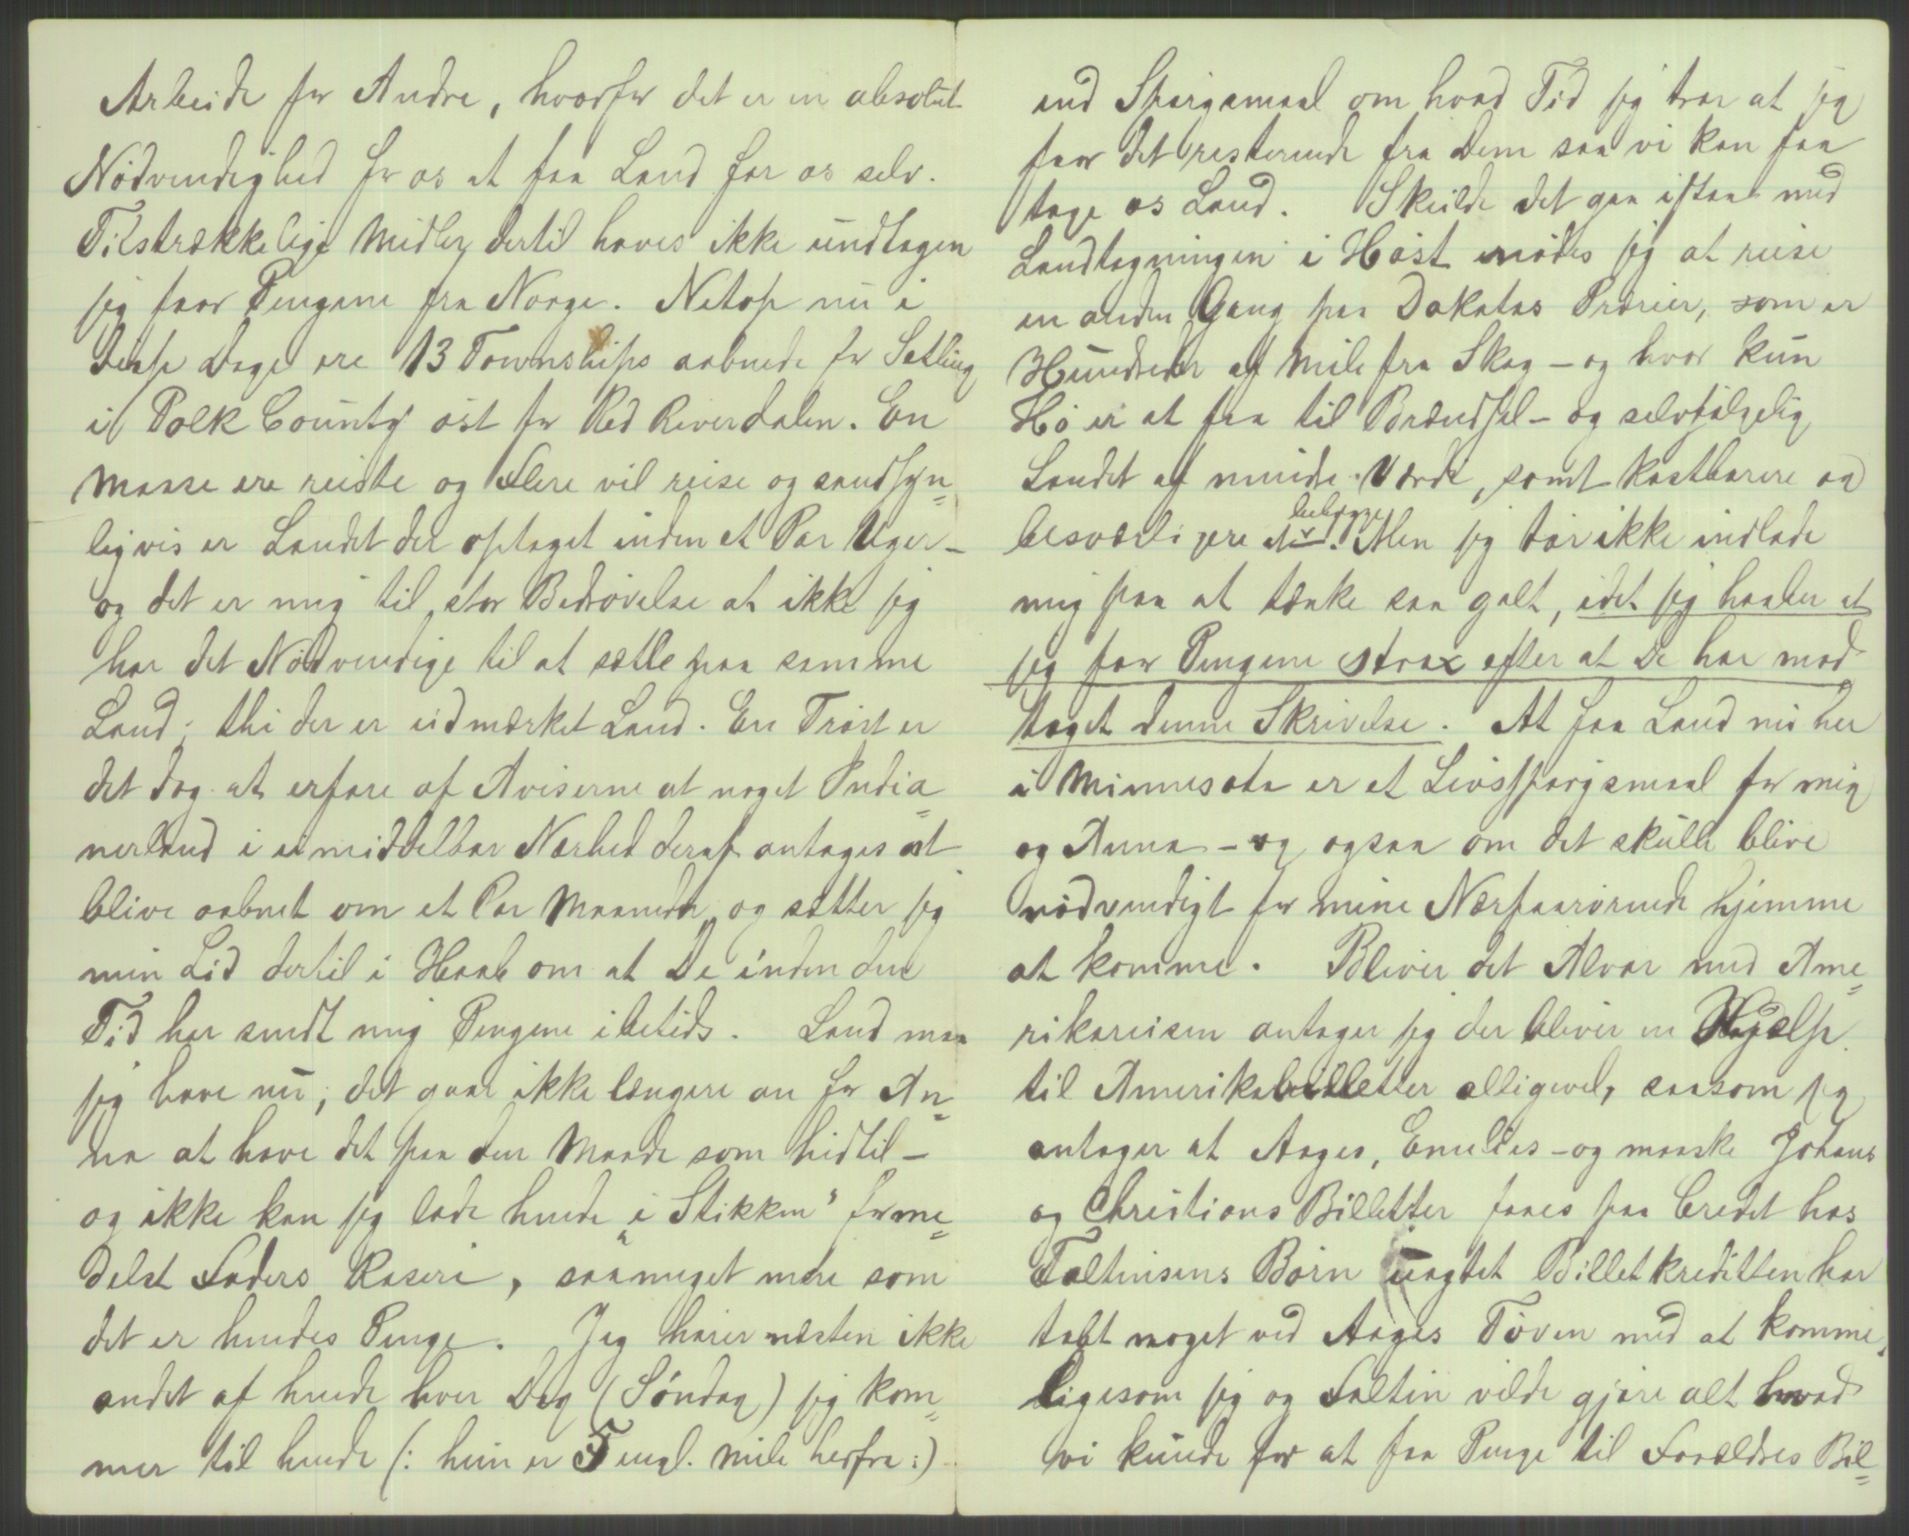 Arbeide for Andre, hvorfor det er en absolut
Nödvendighed for os at faa Land for os selv.
Tilstrækkelige Midler dertil haves ikke undtagen
jeg faar Pengene fra Norge. Netop nu i
disse Dage ere 13 Townships aabnede for Setling
i Polk County öst for Red Riverdalen. En
Masse ere reiste og Flere vil reise og sandsyn=
ligvis er Landet der optaget inden et Par Uger –
og det er mig til stor Bedrövelse at ikke jeg
har det Nödvendige til at sætte paa samme
Land; thi der er udmærket Land. En Tröst er
det dog at erfare af Aviserne at noget India=
nerland i umiddelbar Nærhed deraf antages at
blive aabnet om et Par Maaneder, og sætter jeg
min Lid dertil i Haab om at De inden den
Tid har sendt mig Pengene ibetids. Land maa
jeg have nu; det gaar ikke længere an for An=
na at have det paa den Maade som hidtil –
og ikke kan jeg lade hende „i Stikken" forme=
delst Faders Raseri, saameget mere som
det er hendes Penge. Jeg hörer næsten ikke
andet af hende hver Dag (Söndag) jeg kom=
mer til hende (: hun er 5 engl. Mile herfra :)
end Spörgsmaal om hvad Tid jeg tror at jeg
faar det resterende fra Dem saa vi kan faa
tage os Land. Skulde det gaa istaa med
Landtagningen i Höst nödes jeg at reise
en anden Gang paa Dakotas Prærier, som er
Hundreder af Mile fra Skog – og hvor kun
Hö er at faa til Brændsel – og selvfölgelig
Landet af mindre Værdi, samt kostbarere og
besværligere at bebygge. Men jeg tör ikke indlade
mig paa at tænke saa galt, idet jeg haaber at
jeg faar Pengene strax efter at De har mod
taget denne Skrivelse. At faa Land nu her
i Minnesota er et Livsspörgsmaal for mig
og Anna – og ogsaa om det skulle blive
nödvendigt for mine Nærpaarörende hjemme
at komme. Bliver det Alvor med Ame=
rikareisen antager jeg der bliver en Hjælp
til Amerikabilletter alligevel, saasom jeg
antager at Aages, Emelies – og maaske Johans
og Christians Billetter faaes paa Credit hos
Faltinsens Börn uagtet Billetkreditten har
tabt noget ved Aages Töven med at komme,
Ligesom jeg og Faltin vilde gjöre alt hvad
vi kunde for at faa Penge til Forældres Bil=